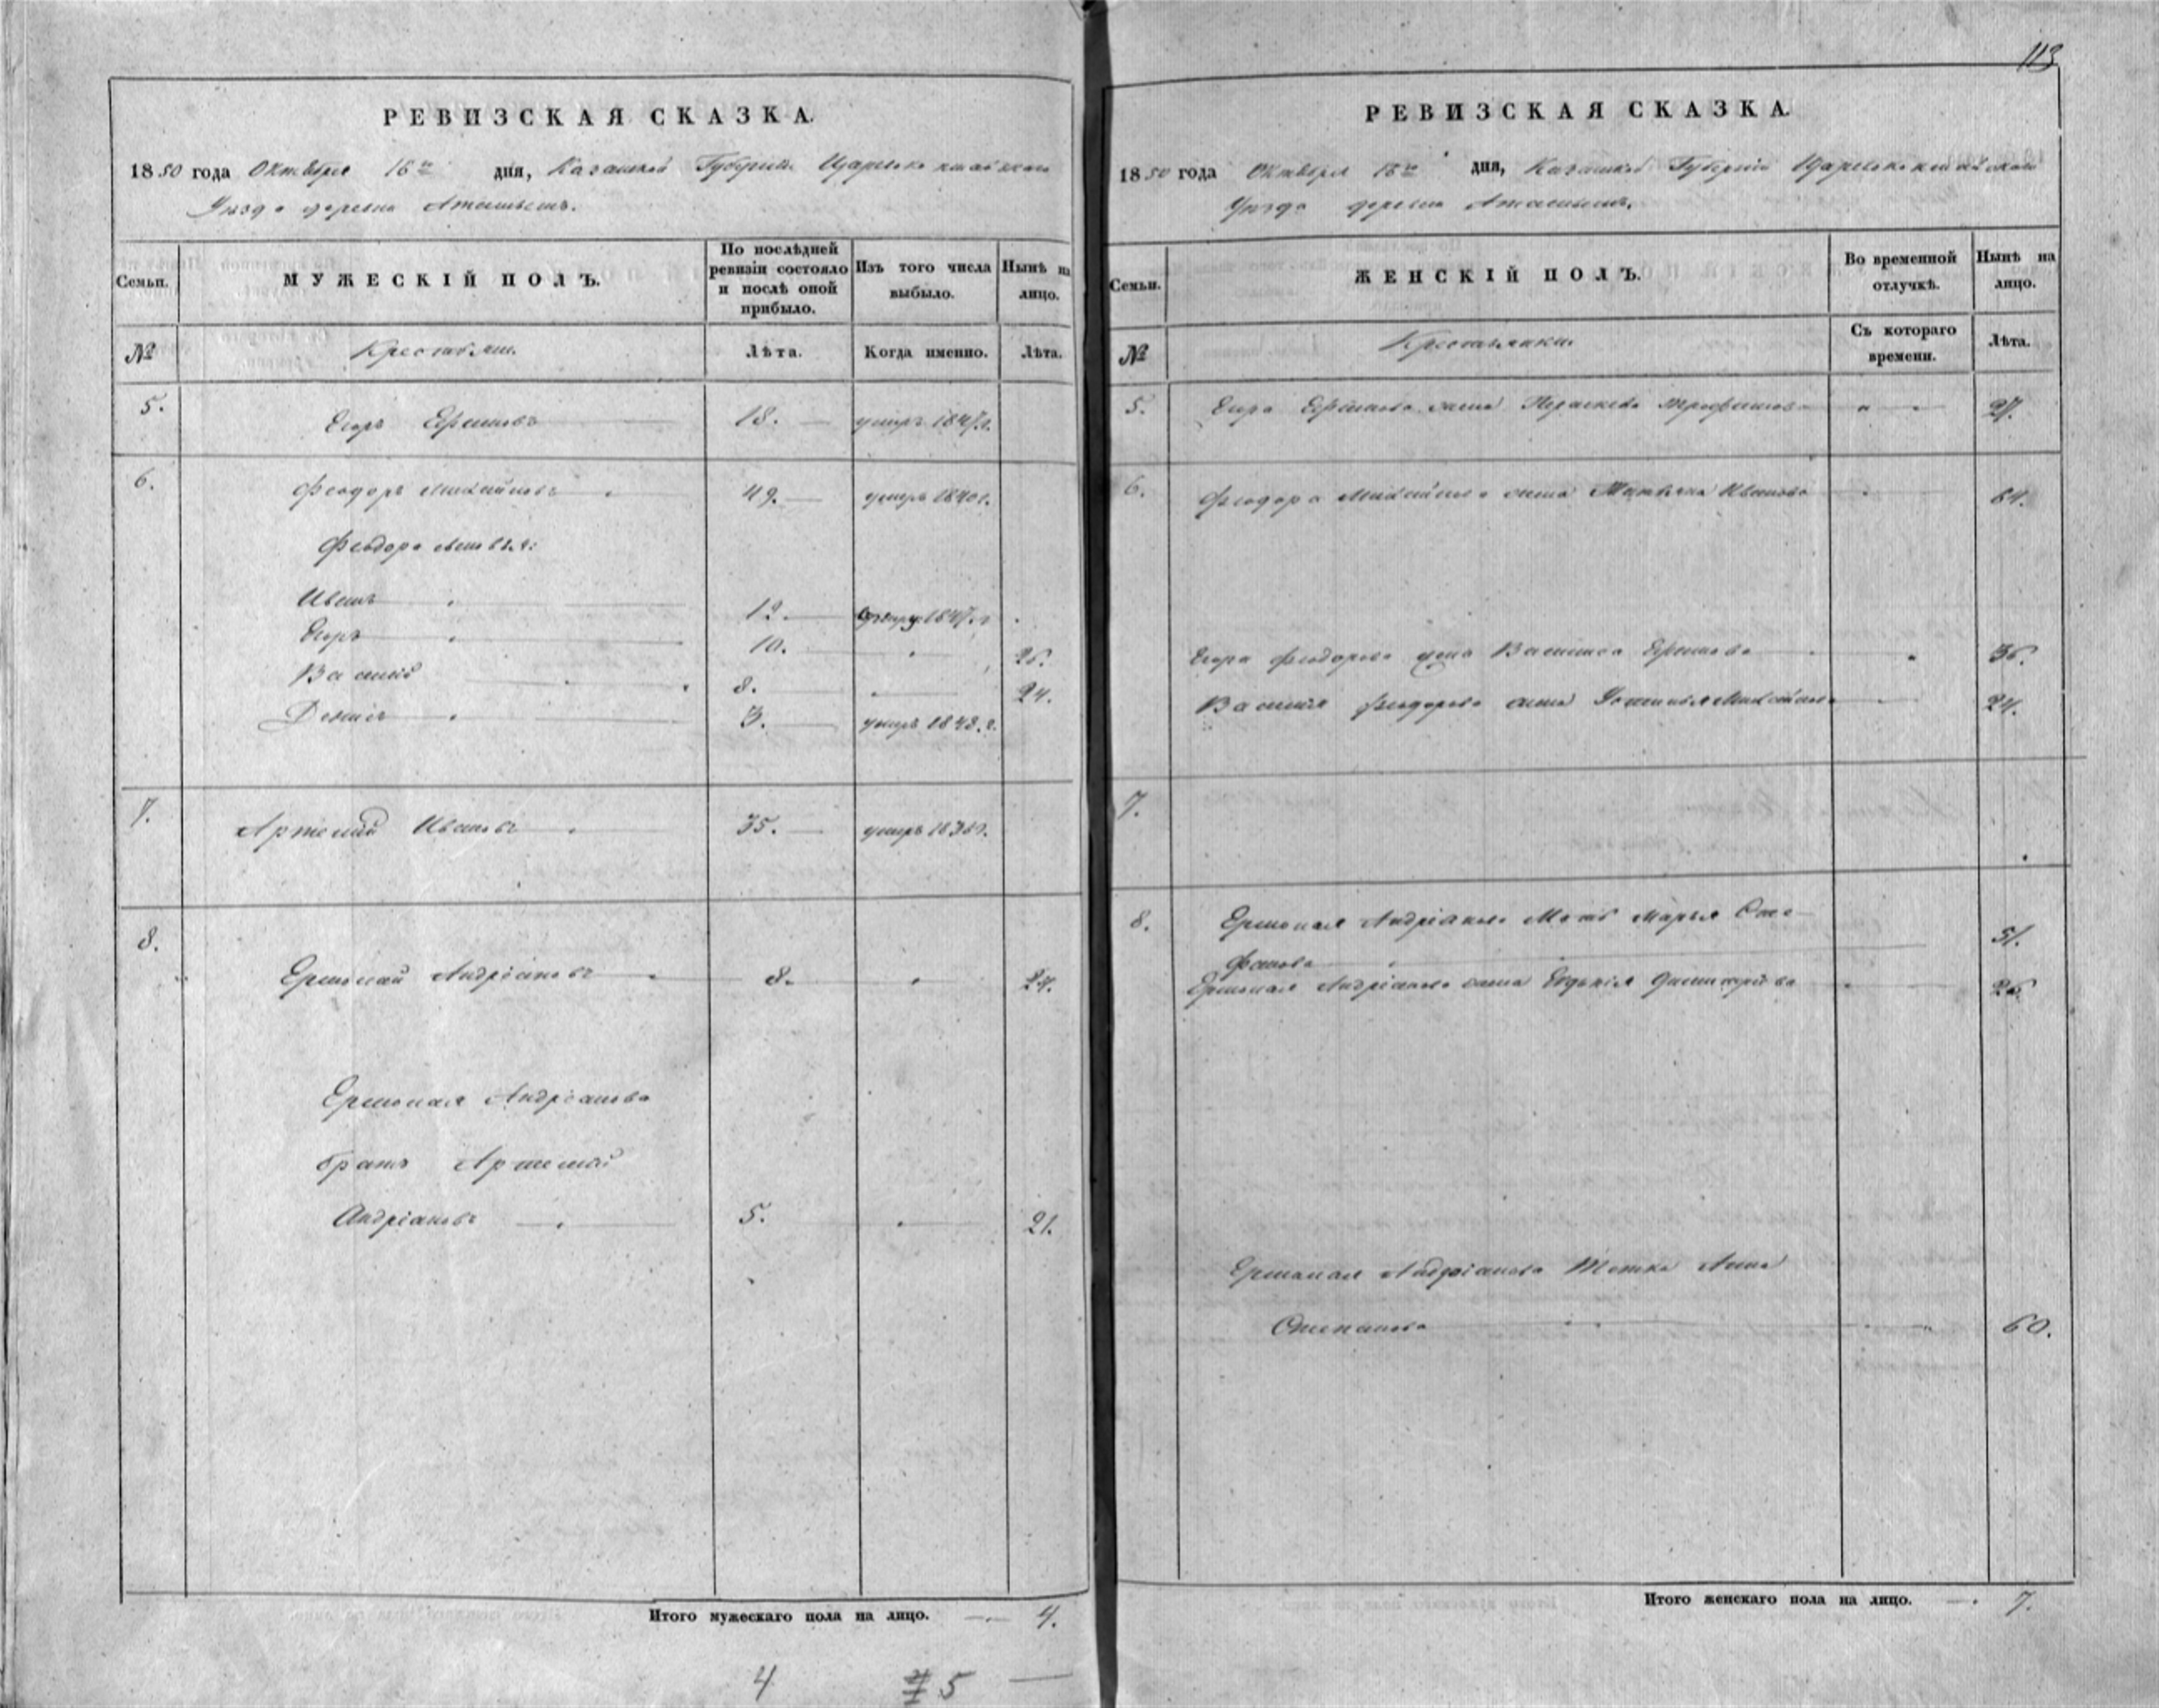 113
РЕВИЗСКАЯ СКАЗКА.
1850 года Октября 16го дня, Казанской Губернiи Царевококшайскаго
Уѣзда деревни
Семьи.
МУЖЕСКІЙ ПОЛЪ.
По послѣдней ревизіи состояло и послѣ оной прибыло.
Изъ того числа выбыло.
Нынѣ на лицо.
№
Крестьяне.
Лѣта.
Когда именно.
Лѣта.
5. Егоръ Ефимовъ 18. умеръ 1847.г.
6. Феодоръ Михайловъ 49. умеръ 1840г.
Феодора сыновья:
Иванъ 12. 1847.г
Егоръ 10. 26.
Василiй 8. 24.
Денисъ 3. умеръ 1848.г.
7. Артемiй Ивановъ 35. умеръ 1836г.
8.
Ермолай Андрiановъ 8. 24.
Ермолая Андрiанова
братъ Артемiй
Андрiановъ 5. 21.
Итого мужескаго пола на лицо. 4.
4 5
РЕВИЗСКАЯ СКАЗКА.
1850 года Октября 16го дня, Казанской Губернiи Царевококшайскаго
Уѣзда деревни
Семьи.
ЖЕНСКІЙ ПОЛЪ.
Во временной отлучкѣ.
Нынѣ на лицо.
№
Крестьянки.
Съ котораго времени.
Лѣта.
5. Егора Ефимова жена Параскева Трофимова 27.
6. Феодора Михайлова жена Татьяна Иванова 64.
Егора Феодорова жена Василиса Ефимова 36.
Василiя Феодорова жена Устинья Михайлова 24.
7.
8. Ермолая Андрiанова Мать Марья Сте-
фанова 51.
Ермолая Андрiанова жена Евдокiя Дмитрiева 26
Ермолая Андрiанова Тетка Анна
Степанова 60.
Итого женскаго пола на лицо. 7.